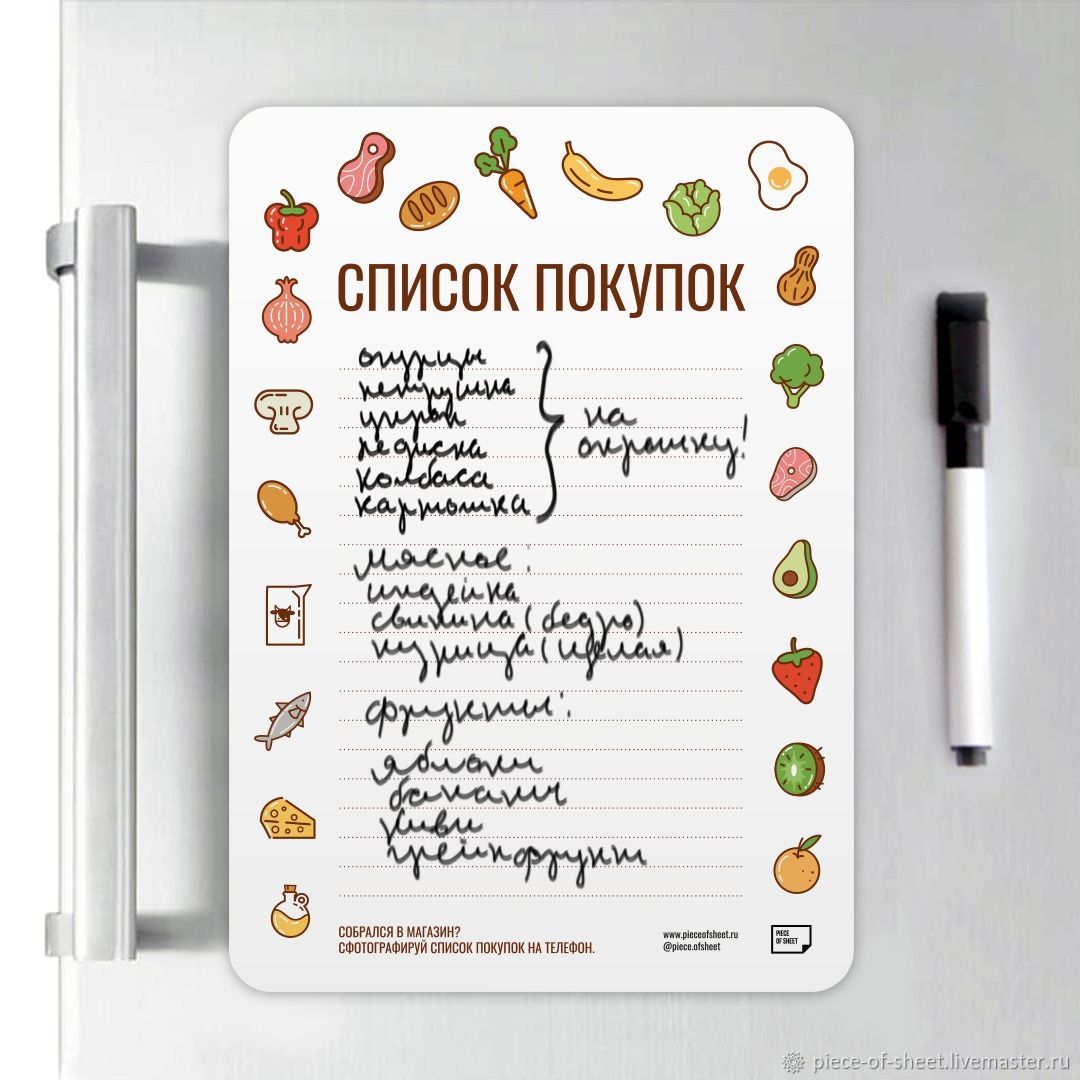 СПИСОК ПОКУПОК
огурцы
петрушка
укроп
редиска
колбаса
картошка
на
окрошку!
мясное:
индейка
свинина (бедро)
курица (целая)
фрукты:
яблоки
бананы
киви
грейпфрукт
СОБРАЛСЯ В МАГАЗИН?
СФОТОГРАФИРУЙ СПИСОК ПОКУПОК НА ТЕЛЕФОН.
www.pieceofsheet.ru
@piece.ofsheet
PIECE
OF SHEET
piece-of-sheet.livemaster.ru